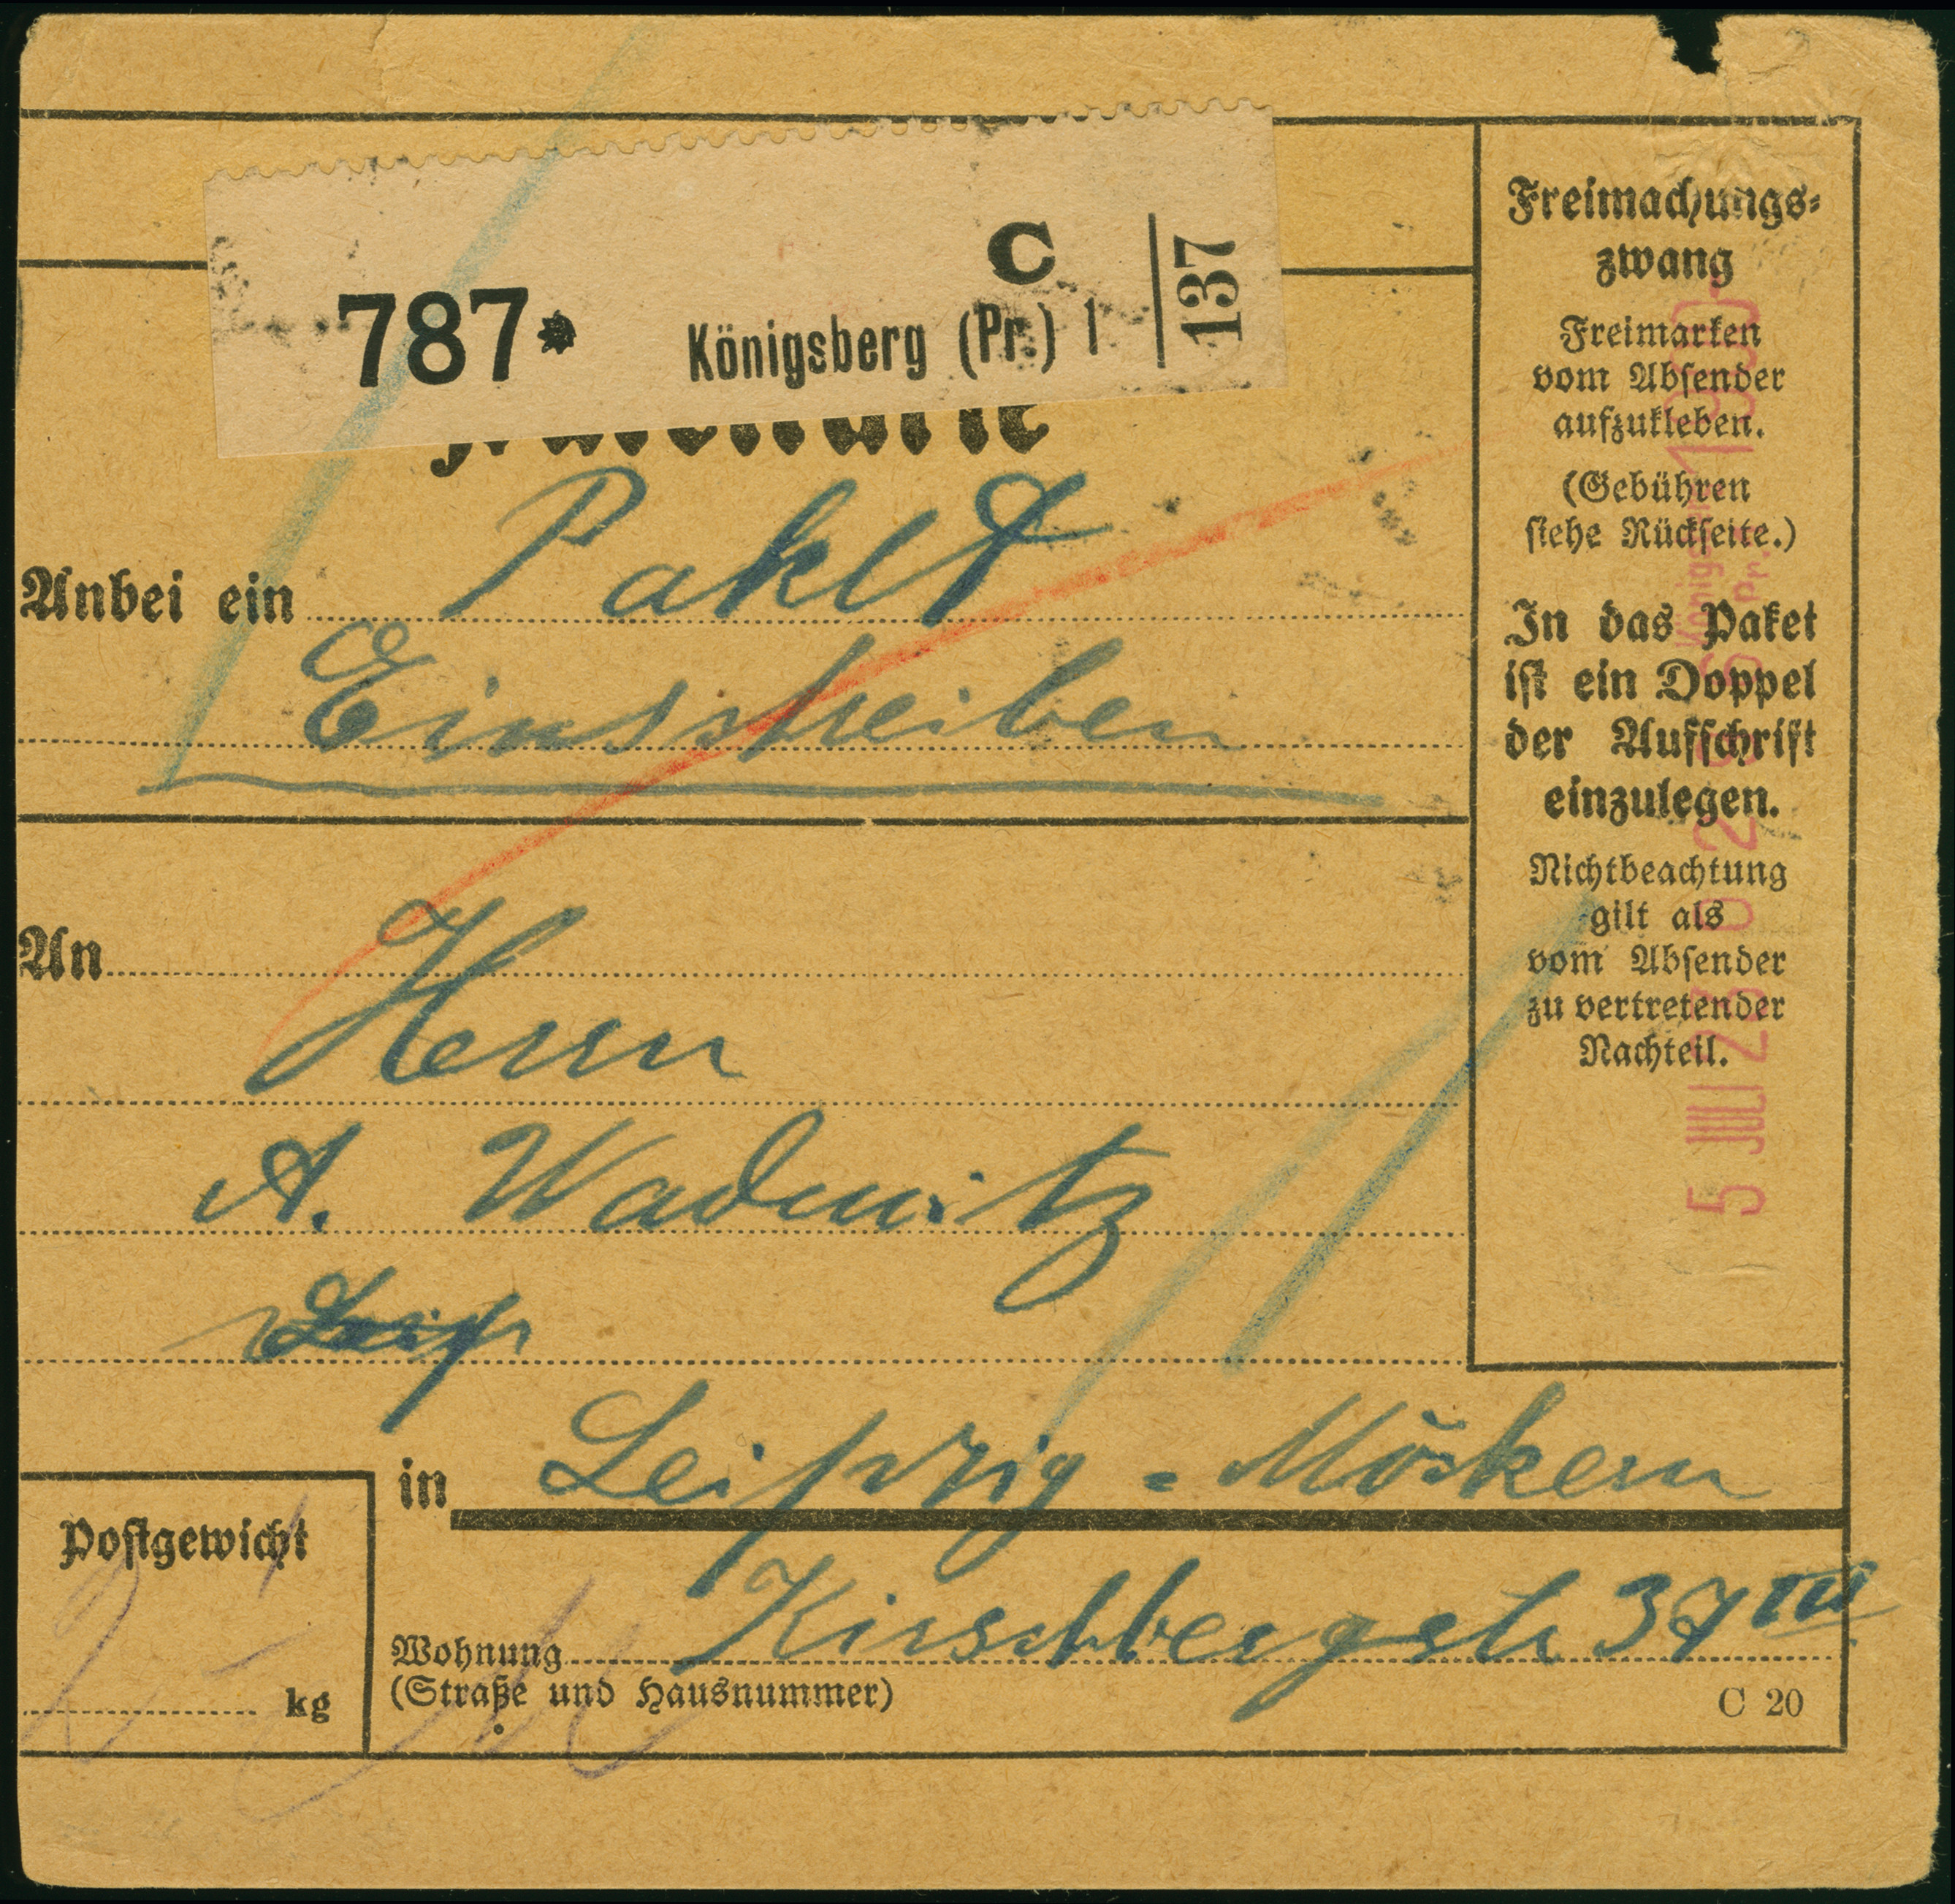 C
787* Königsberg (Pr.) 1
137
Anbei ein Paket
Einschreiben
An
Herrn
A. Wadewitz
Leip
in Leipzig = Möckern
Postgewicht
kg
Wohnung Kirschbergstr 37 III
(Straße und Hausnummer)
C 20
Freimachungs-
zwang
Freimarken
vom Absender
aufzukleben.
(Gebühren
siehe Rückseite.)
In das Paket
ist ein Doppel
der Aufschrift
einzulegen.
Nichtbeachtung
gilt als
vom Absender
zu vertretender
Nachteil.
5 JULI 23